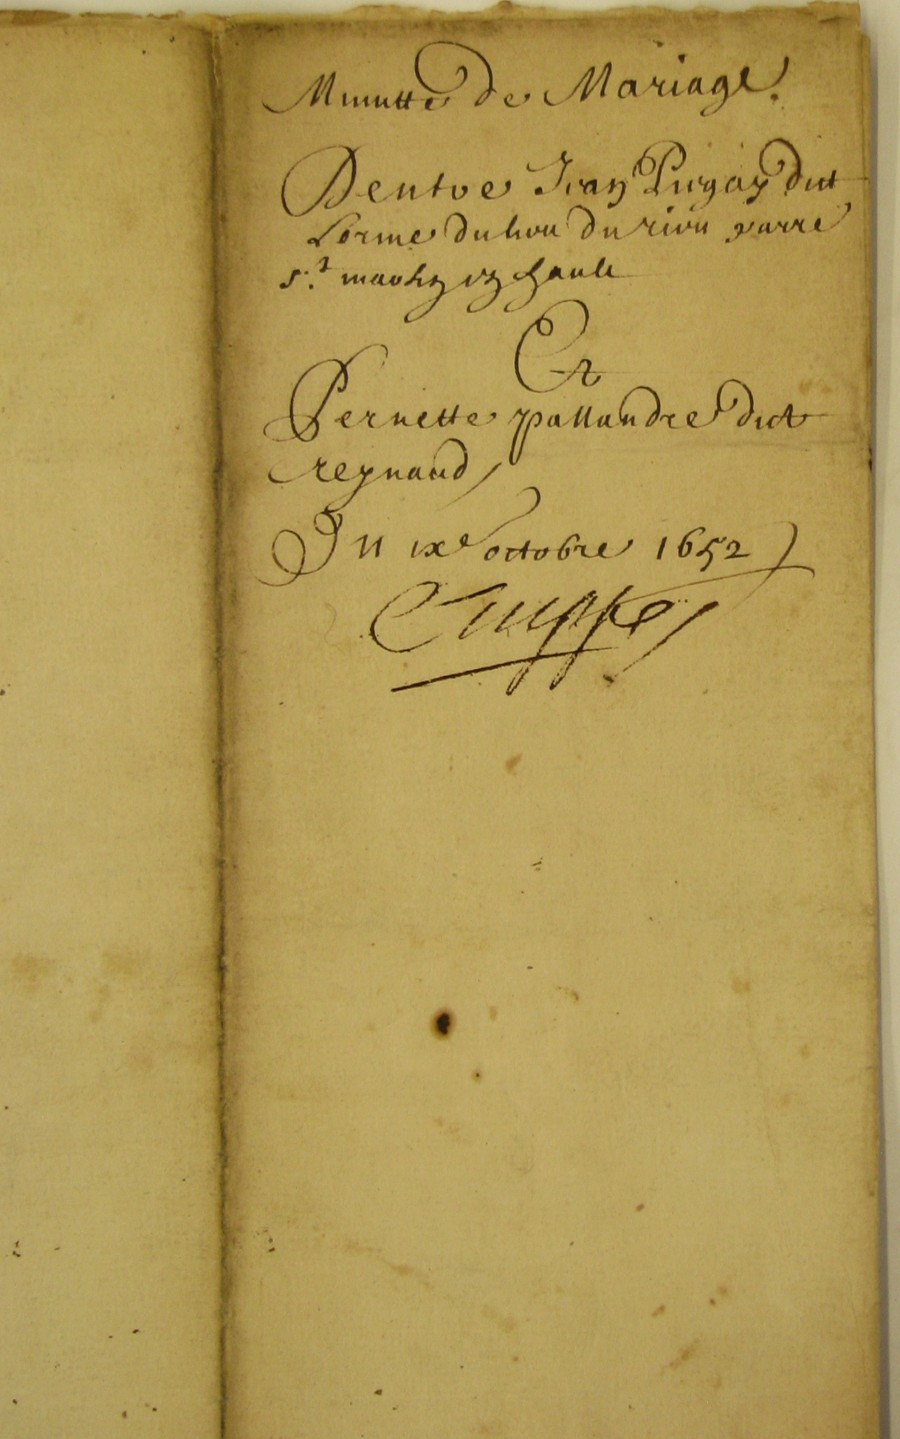 Minutte de Mariage.
Dentre Jean Pugay dict
Lorme du lieu du riou parre
St martin en haute
Et
Pernette pallandre dict
reynaud
Du ixe octobre 1652